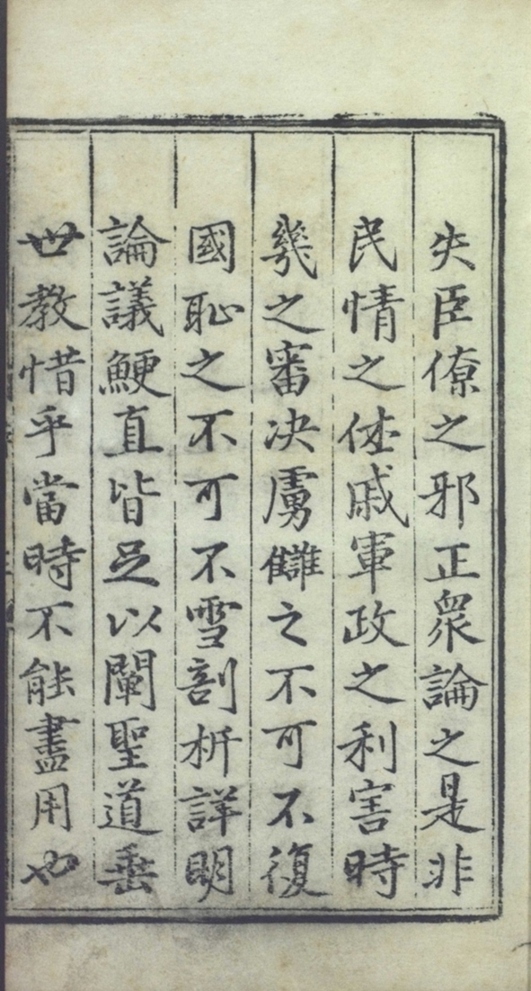 失臣僚之邪正衆論之是非
民情之休戚軍政之利害時
幾之審决虜讎之不可不復
國恥之不可不雪剖析詳明
論議鯁直皆足以闡聖道垂
世教惜乎當時不能盡用也